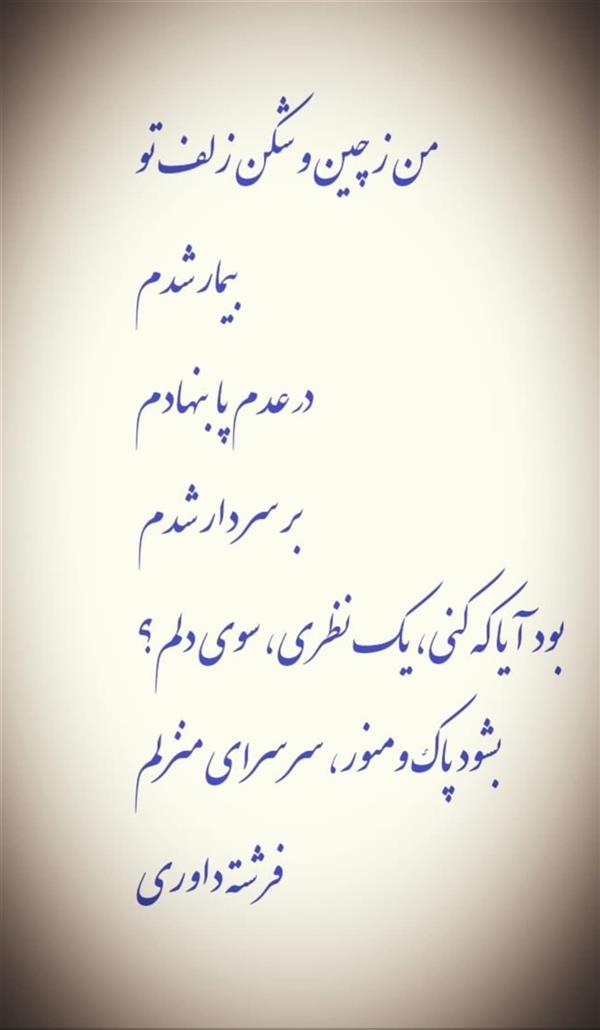 من ز چین و شکن زلف تو
بیمار شدم
در عدم پا بنهادم
بر سر دار شدم
بود آیا که کنی، یک نظری، سوی دلم؟
بشود پاک و منور، سر سرای منزلم
فرشته داوری